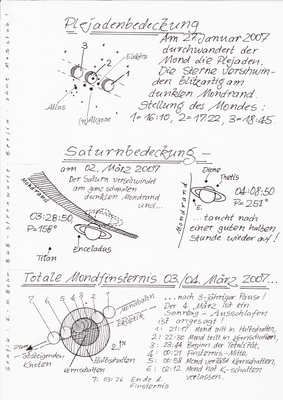 Plejadenbedeckung
Am 27. Januar 2007
durchwandert der
Mond die Plejaden.
Die Sterne verschwin-
den blitzartig am
dunklen Mondrand.
Stellung des Mondes:
1=16:10, 2=17:22, 3=18:45.
3
2
1
Elektra
Atlas
Alcyone
Saturnbedeckung –
am 02. März 2007
Der Saturn verschwindet
am ganz schmalen
dunklen Mondrand
und...
MONDRAND
03:28:50
P=158°
Titan
Enceladus
Dione
Thetis
E.
Mondrand
04:08:50
P=251°
...taucht nach
einer guten halben
Stunde wieder auf!
Totale Mondfinsternis 03./04. März 2007...
7 6 5 4 3 2 1
Mondbahn
Ekliptik
N
zum
absteigenden
Knoten
Halbschatten
Kernschatten
7: 03:26 Ende d.
Finsternis
...nach 3-jähriger Pause!
Der 4. März ist ein
Sonntag - Ausschlafen
ist angesagt!
1: 21:17 Mond tritt in Halbschatten,
2: 22:30 Mond tritt in Kernschatten,
3: 23:44 Beginn der Totalität,
4: 00:21 Finsternis-Mitte,
5: 00:58 Mond verläßt Kernschatten,
6: 02:12 Mond hat K-schatten
verlassen.